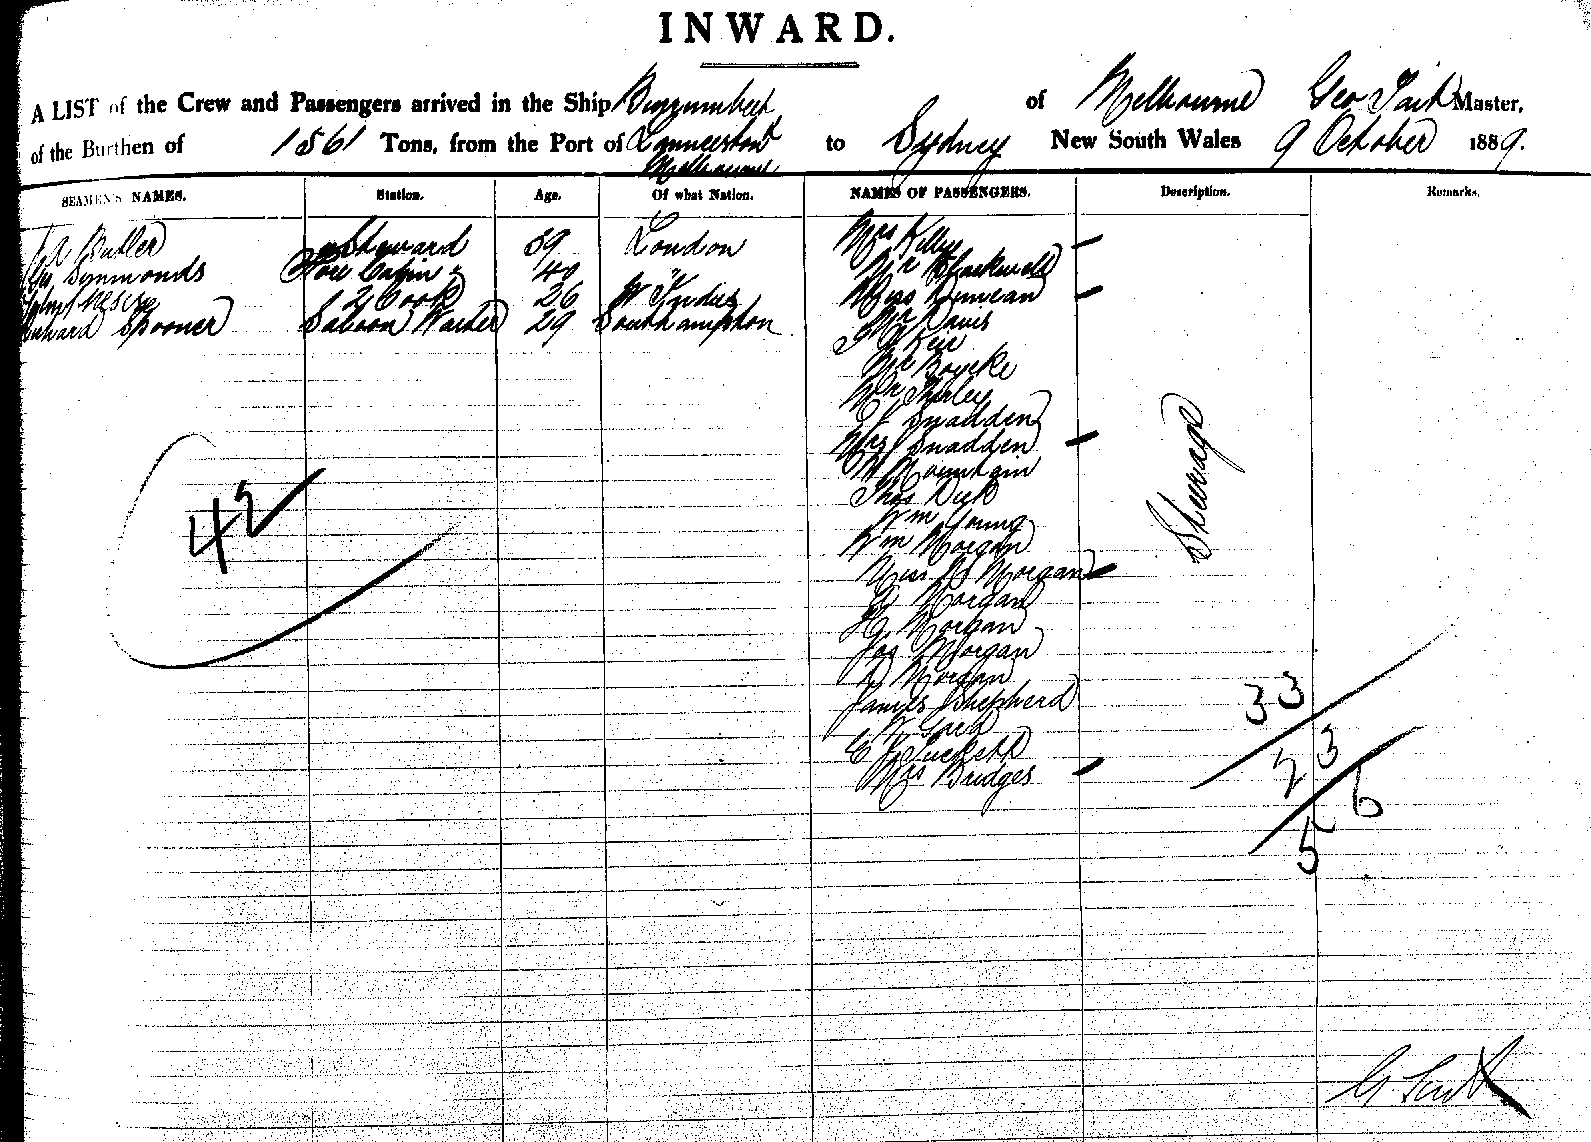 INWARD.
A LIST of the Crew and Passengers arrived in the Ship Burrumbeet of Melbourne Geo Tait Master,
of the Burthen of 1561 Tons, from the Port of Launceston Melbourne to Sydney New South Wales 9 October 1889.
SEAMEN'S NAMES. Station. Age. Of what Nation. NAMES OF PASSENGERS. Description. Remarks.
Butler Steward 39 London Mrs Kellye
Symmonds Fore Cabin " 40 " Mr Shackwell
2 Cook 26 W Indies Miss Duncan
Spooner Saloon Waiter 29 Southampton Mr Davis
Keir
Mr Bourke
Mr Shirley
Snadden
Mrs Snadden
W Mountain
Thos Dick
Wm Young
Wm Morgan
Miss Morgan
Morgan
H Morgan
Jas Morgan
Morgan
James Shepherd
W
E
Mrs Bridges
Steerage
42
33
23
6
5
G Tait